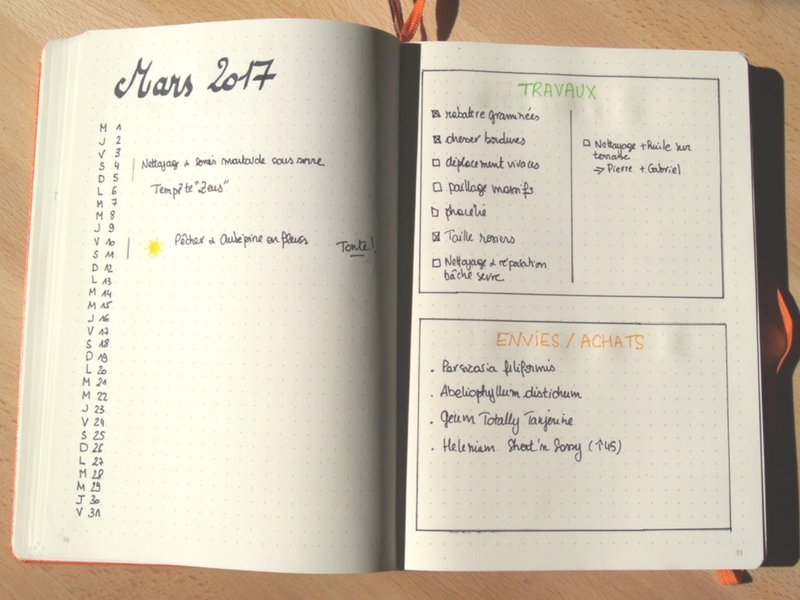 Mars 2017
M 1
J 2
V 3
S 4 Nettoyage & semis moutarde sous serre
D 5
L 6 Tempête "Zeus"
M 7
M 8
J 9
V 10 Pêcher & Aubépine en fleurs
S 11 Tonte!
D 12
L 13
M 14
M 15
J 16
V 17
S 18
D 19
L 20
M 21
M 22
J 23
V 24
S 25
D 26
L 27
M 28
M 29
J 30
V 31
TRAVAUX
rabattre graminées
dresser bordures
déplacement vivaces
paillage massifs
phacélie
Taille rosiers
Nettoyage & réparation
bâche serre
Nettoyage + Huile sur
terrasse
⇒ Pierre + Gabriel
ENVIES / ACHATS
. Persicaria filiformis
. Abeliophyllum distichum
. Geum Totally Tangerine
. Helenium Short'n Sassy (↑45)
33